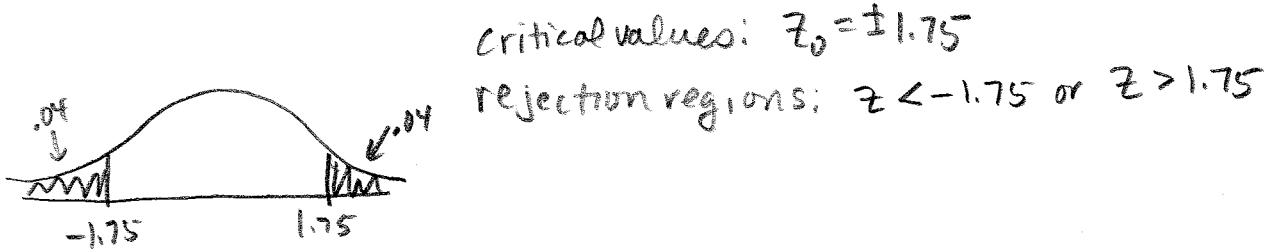 critical values: z₀ = ±1.75
rejection regions: z < -1.75 or z > 1.75
.04
.04
-1.75
1.75